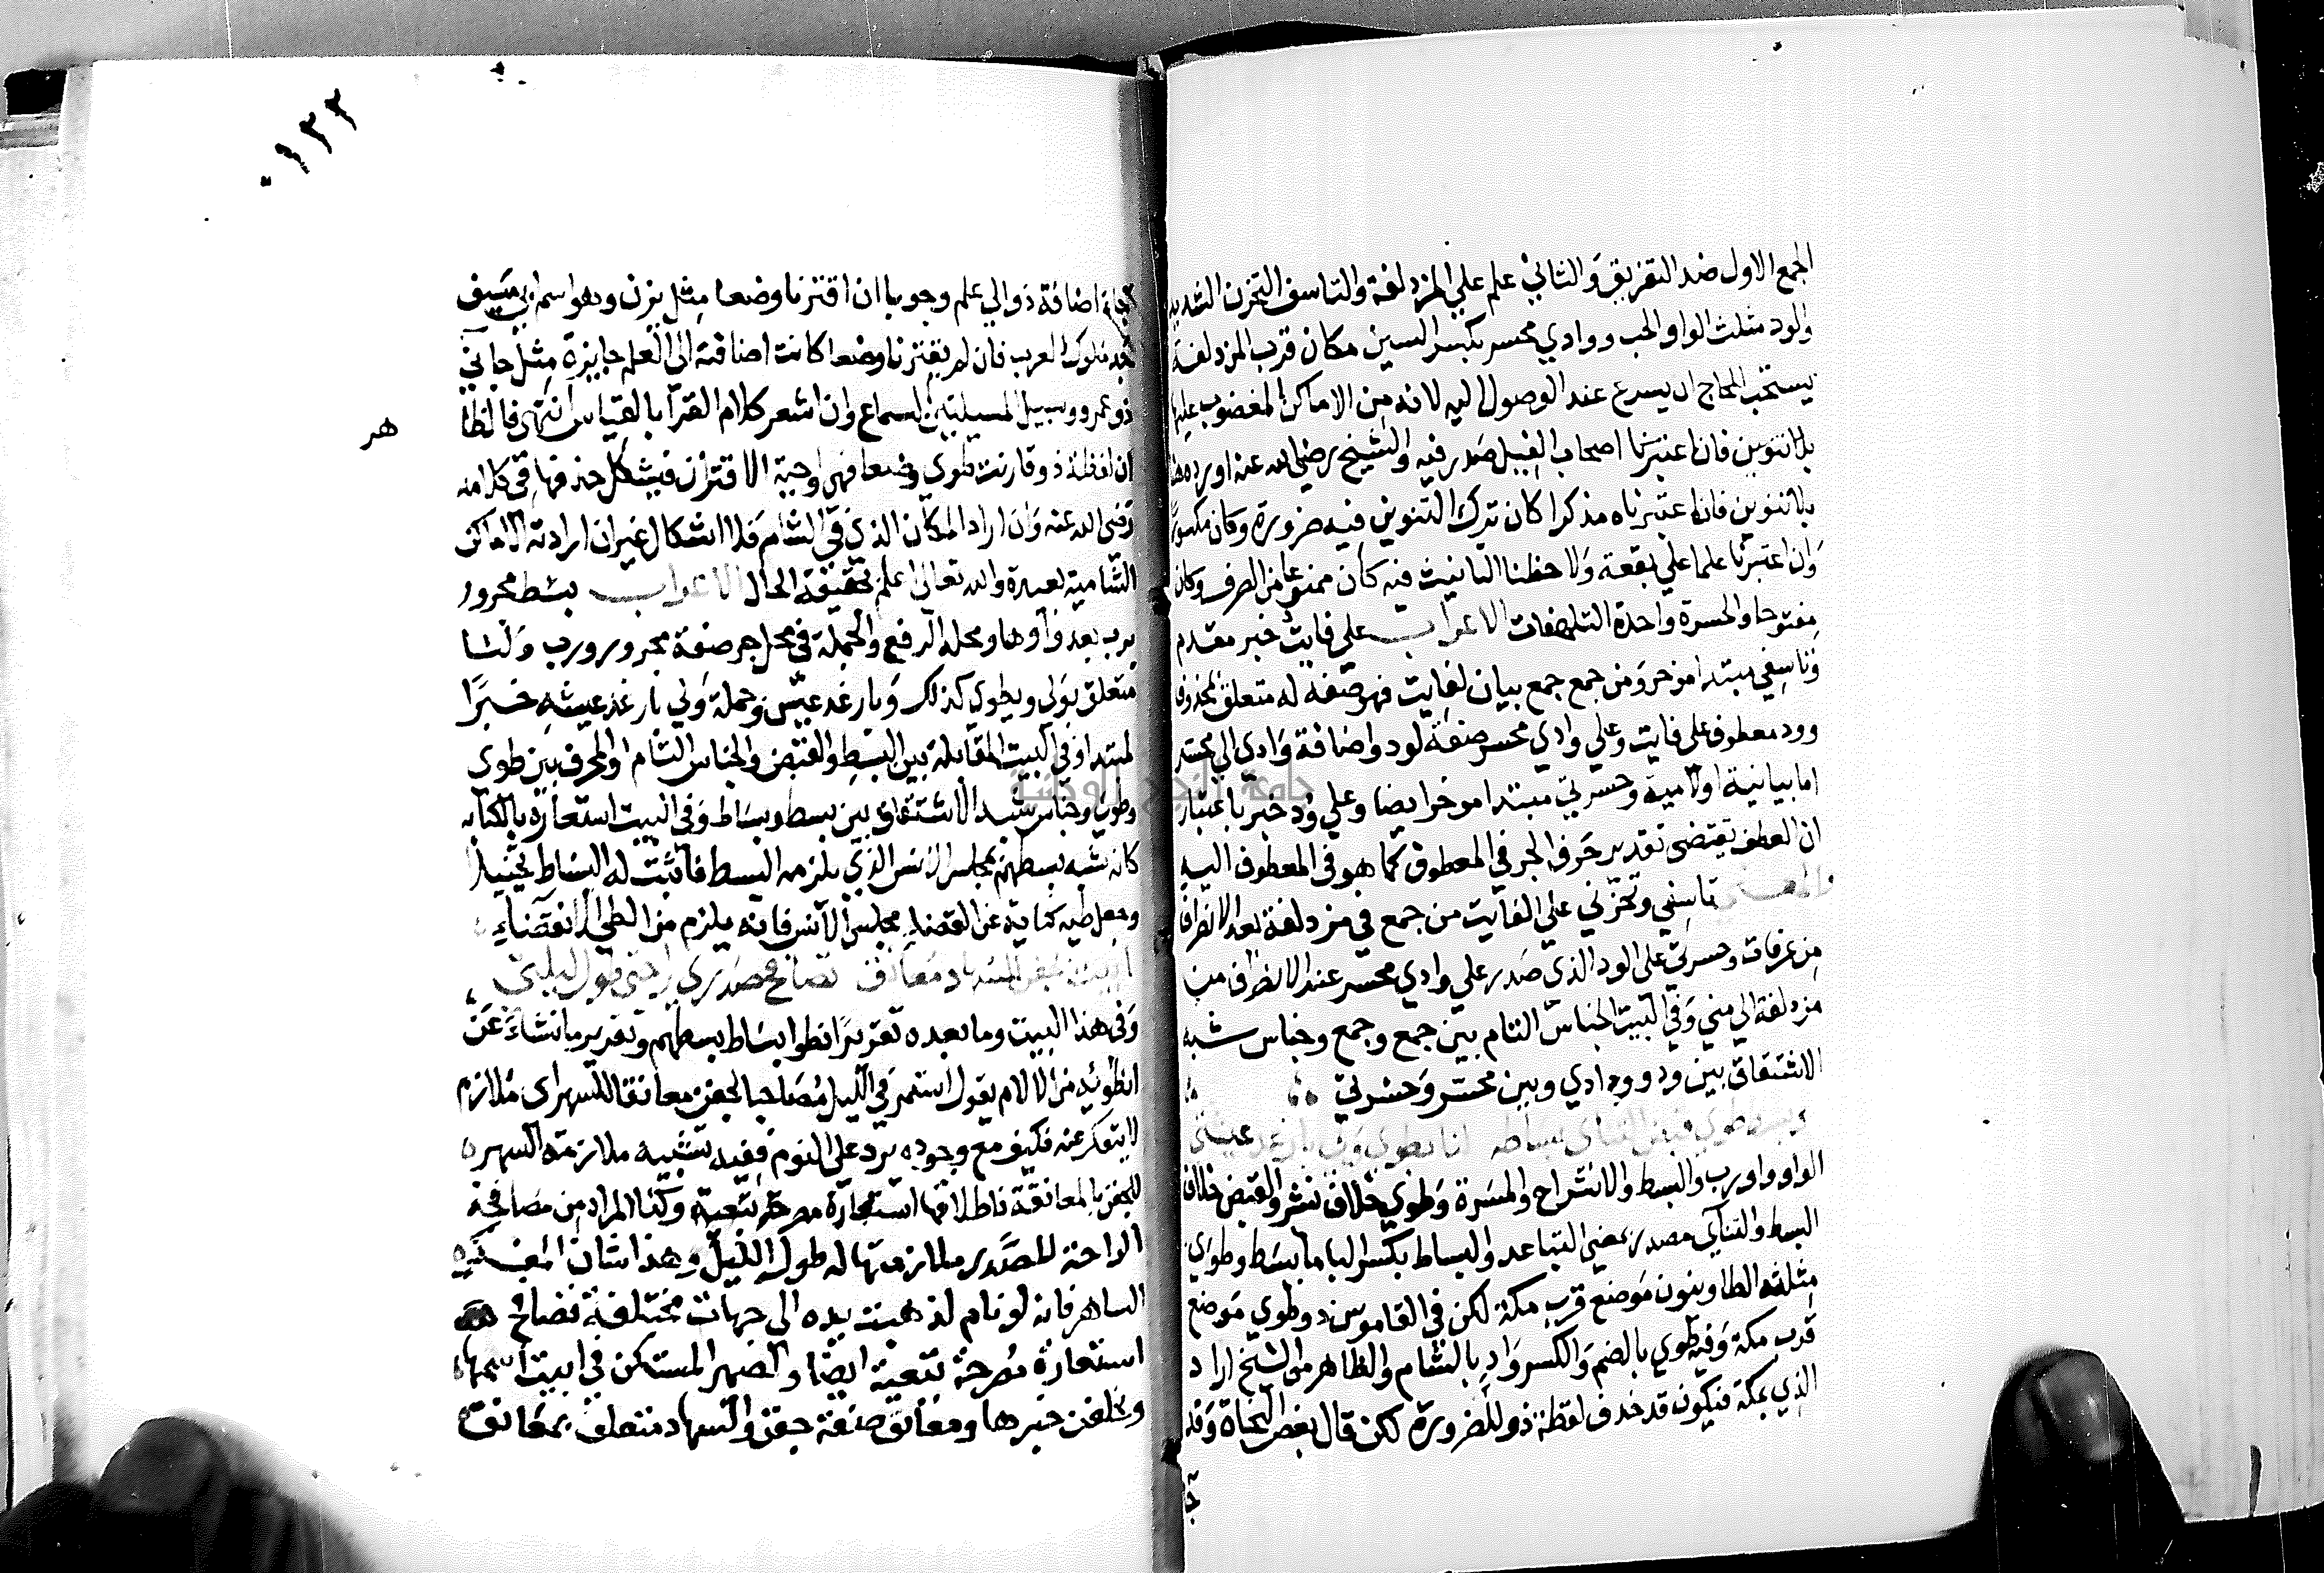 الجمع الاول ضد التفريق والثاني علم علي المزدلفة والتاسف التحزن الشديد
والود مثلث الواو الحب ووادي محسر بكسر السين مكان قرب المزدلفة
يستحب للحاج ان يسرع عند الوصول اليه لانه من الاماكن المغضوب عليها
بلا تنوين فان اصحاب الفيل صدر فيه والشيخ رضي الله عنه اورده
بلا تنوين فان اعتبرناه مذكرا كان ترك التنوين فيه ضرورة وكان مكسورا
وان اعتبرنا علما علي بقعة ولاحظنا التانيث فيه كان ممنوعا من الصرف وكان
مفتوحا والحسرة واحدة التلهفات الاعراب علي فايت خبر مقدم
وتاسفي مبتدا موخر ومن جمع جمع بيان لفايت فهو صفة له متعلق بمحذوف
وود معطوف علي فايت وعلي وادي محسر صفة لود واضافة وادي الي محسر
اما بيانية او لامية وحسرتي مبتدا موخر ايضا وعلي ود خبر باعتبار
ان العطف يقتضي تقدير حرف الجر في المعطوف كما هو في المعطوف اليه
تاسفي وتحزني علي الفايت من جمع في مزدلفة بعد الانصراف
من عرفات وحسرتي علي الود الذي صدر علي وادي محسر عند الانصراف من
مزدلفة الي مني وفي البيت الجناس التام بين جمع وجمع وجناس شبه
الاشتقاق بين ود ووادي وبين محسر وحسرتي
وبسط طوي قبض التنائي بساطه لنا بطوي ولي بارغد عيشتي
الواو واو رب والبسط والانشراح والمسرة وطوي خلاف نشر والقبض خلاف
البسط والتنائي مصدر بمعني التباعد والبساط بكسر البا ما بسط وطوي
مثلثة الطا وينون موضع قرب مكة لكن في القاموس ذو طوي موضع
قرب مكة وفيه طوي بالضم والكسر واد بالشام والظاهر ان الشيخ اراد
الذي بمكة فيكون قد حذف لفظة ذو للضرورة لكن قال بعض النحاة وقد
جا
١٢٢
جات اضافة ذو الي علم وجوبا ان اقترنا وضعا مثل يزن وهو اسم ابي سيف
احد ملوك العرب فان لم يقترنا وضعا كانت اضافته الي العلم جايزة مثل جاني
ذو عمرو وسبيل المسيلتين السماع وان اشعر كلام الفرا بالقياس انتهي فالظا
هر
ان لفظة ذو قارنت طوي وضعا فهي واجبة الاقتران فيشكل حذفها في كلامه
رضي الله عنه وان اراد المكان الذي في الشام فلا اشكال غير ان ارادته الاماكن
الشامية بعيدة والله تعالي اعلم بحقيقة الحال الاعراب بسط مجرور
برب بعد واوها ومحله الرفع والجملة في محل جر صفة مجرور رب ولنا
متعلق بولي وبطوي كذلك وبارغد عيش وجملة ولي بارغد عيشه خبر
المبتدا وفي البيت المقابلة بين البسط والقبض والجناس التام او المحرف بين طوي
وطوي وجناس شبه الاشتقاق بين بسط وبساط وفي البيت استعارة بالكناية
كانه شبه بسطهم بمجلس الانس الذي يلزمه البسط فاثبت له البساط تخييلا
وجعل طيه كناية عن انقضا مجلس الانس فانه يلزم من الطي الانقضاء
ابيت بجفن للسهاد معانق تصافح صدري راحتي طول ليلتي
وفي هذا البيت وما بعده تقرير انطوا بساط بسطهم وتقرير ما نشا عن
انطوائه من الالام يقول استمر في الليل مصاحبا لجفن معانقا للسهر اي ملازم
لا ينفك عنه فكيف مع وجوده يرد علي النوم ففيه تشبيه ملازمة السهر
للجفن بالمعانقة فاطلاقها استعارة مصرحة تبعية وكذا المراد من مصافحة
الراحة للصدر ملازمتها له طول الليل وهذا شان
الساهر فانه لو نام لذهبت يده الي جهات مختلفة فتصافح
استعارة مصرحة تبعية ايضا والضمير المستكن في ابيت اسمها
وبجفن خبرها ومعانق صفة جفن والسهاد متعلق بمعانق